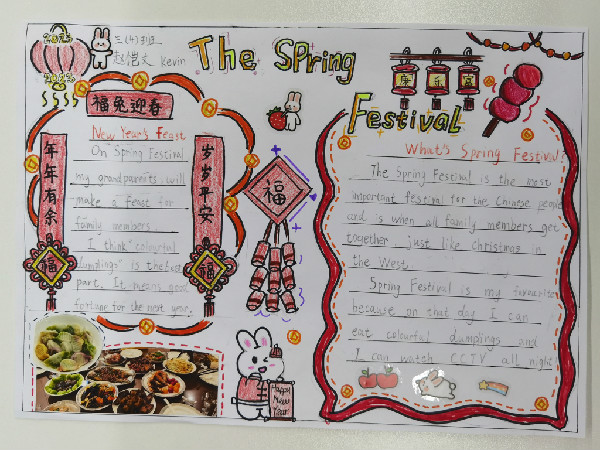 2023
2023
三(4)班
赵恺文 Kevin
The Spring
Festival
福兔迎春
年年有余
岁岁平安
福
福
福
New Year's Feast
On Spring Festival
my grandparents will
make a feast for
family members.
I think "colourful
dumplings" is the best
part. It means good
fortune for the next year.
What's Spring Festival?
The Spring Festival is the most
important festival for the Chinese people
and is when all family members get
together just like Christmas in
the West.
Spring Festival is my favourite
because on that day I can
eat colourful dumplings and
I can watch CCTV all night!
Happy
New
Year!